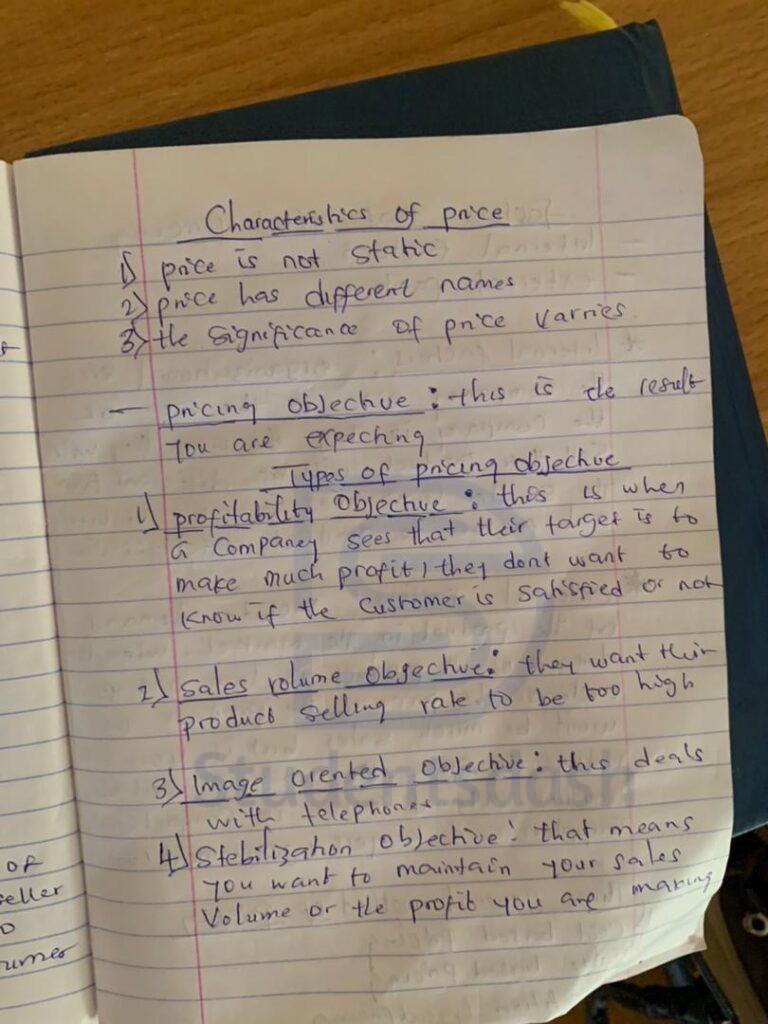 Characteristics of price
1) price is not static
2) price has different names
3) the significance of price varries
- pricing objective : this is the result
you are expecting
Types of pricing objective
1) profitability objective : this is when
a Company sees that their target is to
make much profit, they dont want to
know if the Customer is satisfied or not
2) Sales volume Objective : they want their
product selling rate to be too high
3) Image orented objective : this deals
with telephones
4) Stebilization objective : that means
you want to maintain your sales
Volume or the profit you are making
of
eller
umer
Studentsdash